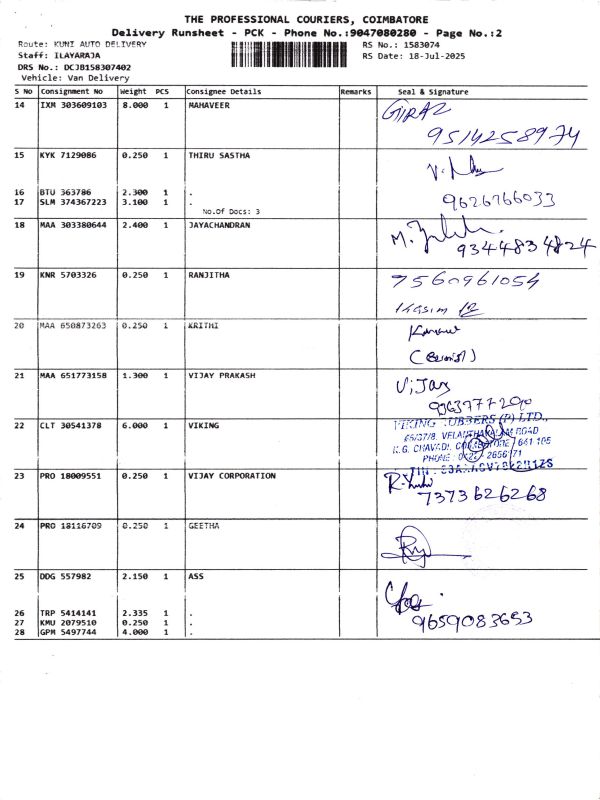 THE PROFESSIONAL COURIERS, COIMBATORE
Delivery Runsheet - PCK - Phone No.:9047080280 - Page No.:2
Route: KUNI AUTO DELIVERY RS No.: 1583074
Staff: ILAYARAJA RS Date: 18-Jul-2025
DRS No.: DCJB158307402
Vehicle: Van Delivery
S No Consignment No Weight PCS Consignee Details Remarks Seal & Signature
14 IXM 303609103 8.000 1 MAHAVEER
9514258974
15 KYK 7129086 0.250 1 THIRU SASTHA
16 BTU 363786 2.300 1 .
17 SLM 374367223 3.100 1 . 9626766033
No.Of Docs: 3
18 MAA 303380644 2.400 1 JAYACHANDRAN
9344834824
19 KNR 5703326 0.250 1 RANJITHA 7560961054
Kasim
20 MAA 650873263 0.250 1 KRITHI
21 MAA 651773158 1.300 1 VIJAY PRAKASH Vijay
22 CLT 30541378 6.000 1 VIKING VIKING RUBBERS (P) LTD.,
66/37/8, VELANTHAVALAM ROAD
K.G. CHAVADI, COIMBATORE 641 105
23 PRO 18009551 0.250 1 VIJAY CORPORATION
7373626268
24 PRO 18116709 0.250 1 GEETHA
25 DDG 557982 2.150 1 ASS
26 TRP 5414141 2.335 1 . 9659083653
27 KMU 2079510 0.250 1 .
28 GPM 5497744 4.000 1 .